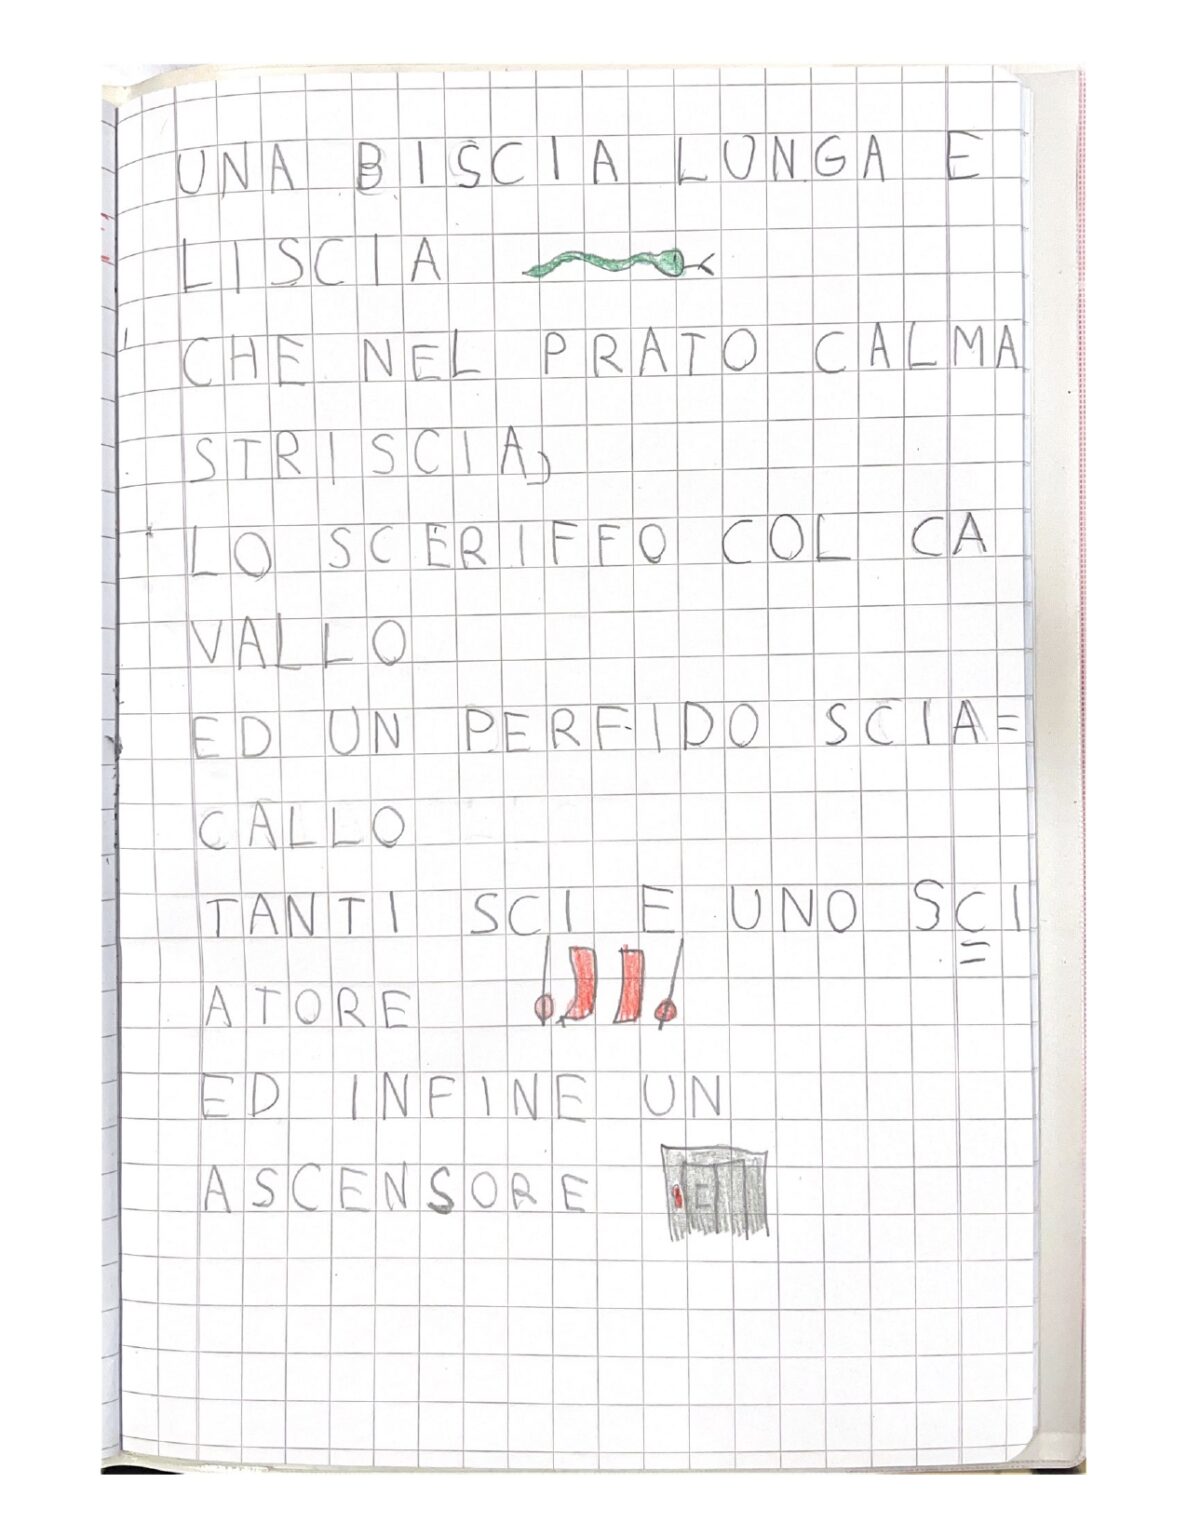 UNA BISCIA LUNGA E
LISCIA
CHE NEL PRATO CALMA
STRISCIA,
LO SCERIFFO COL CA
VALLO
ED UN PERFIDO SCIA=
CALLO
TANTI SCI E UNO SCI
ATORE
ED INFINE UN
ASCENSORE
E